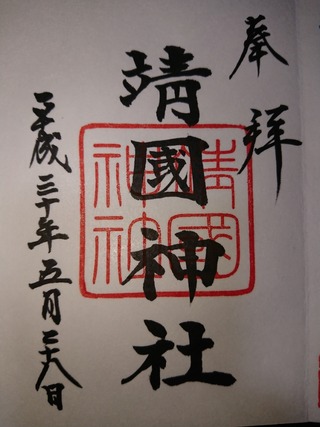 奉拝
靖國神社
靖國神社
平成三十年五月二十八日